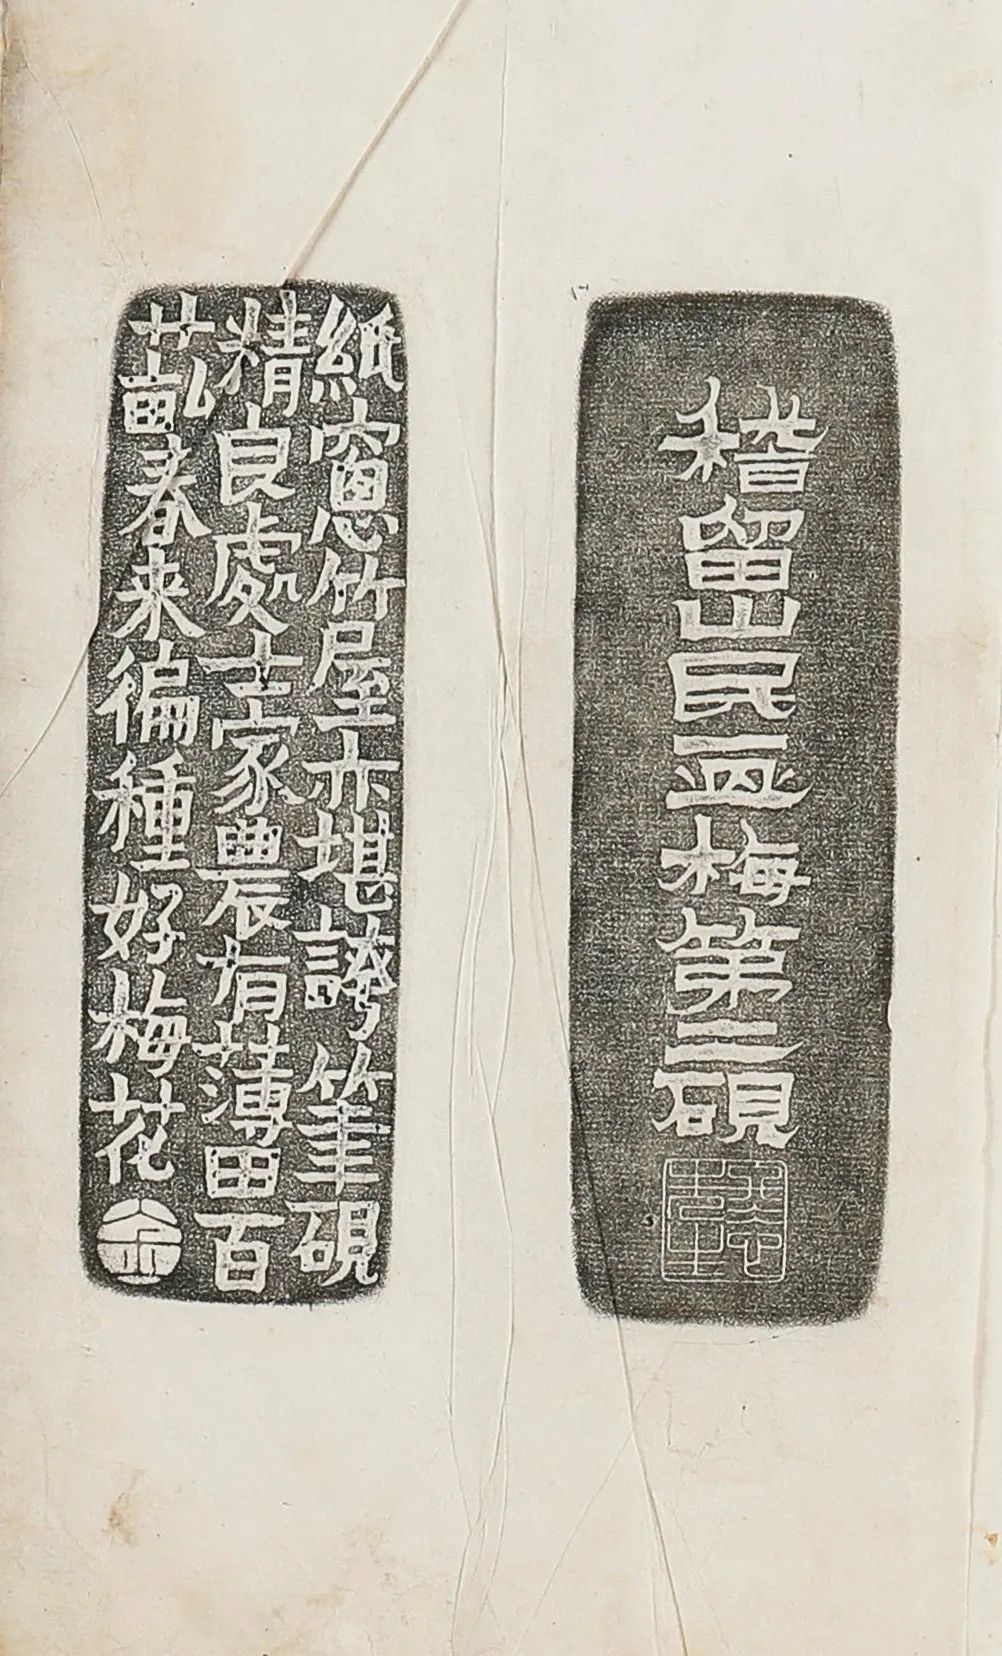 稽留山民画梅第二硯
紙窻竹屋亦堪誇筆硯
精良處士家農有薄田百
廿畝春来徧種好梅花